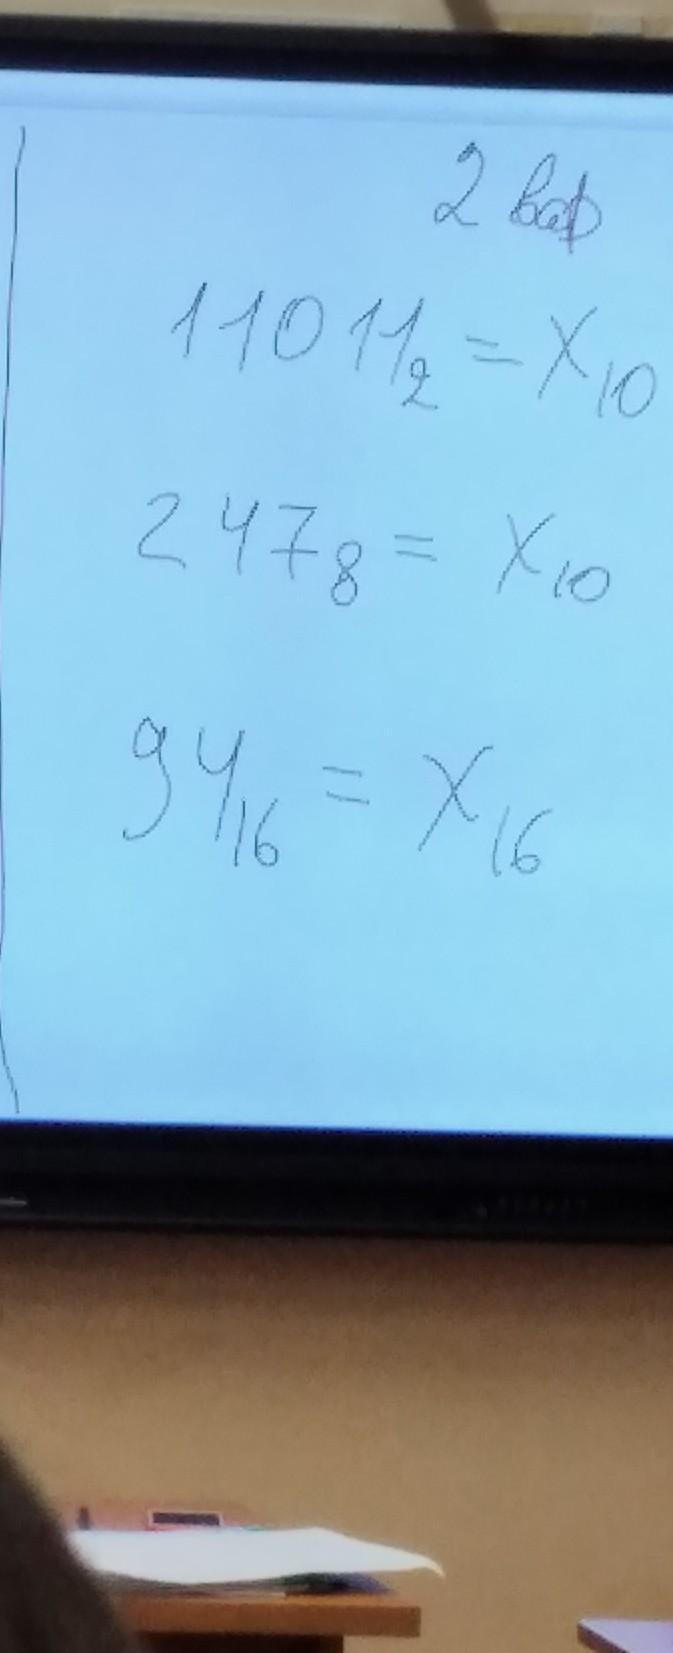 2 вар
11011₂ = X₁₀
247₈ = X₁₀
94₁₆ = X₁₆